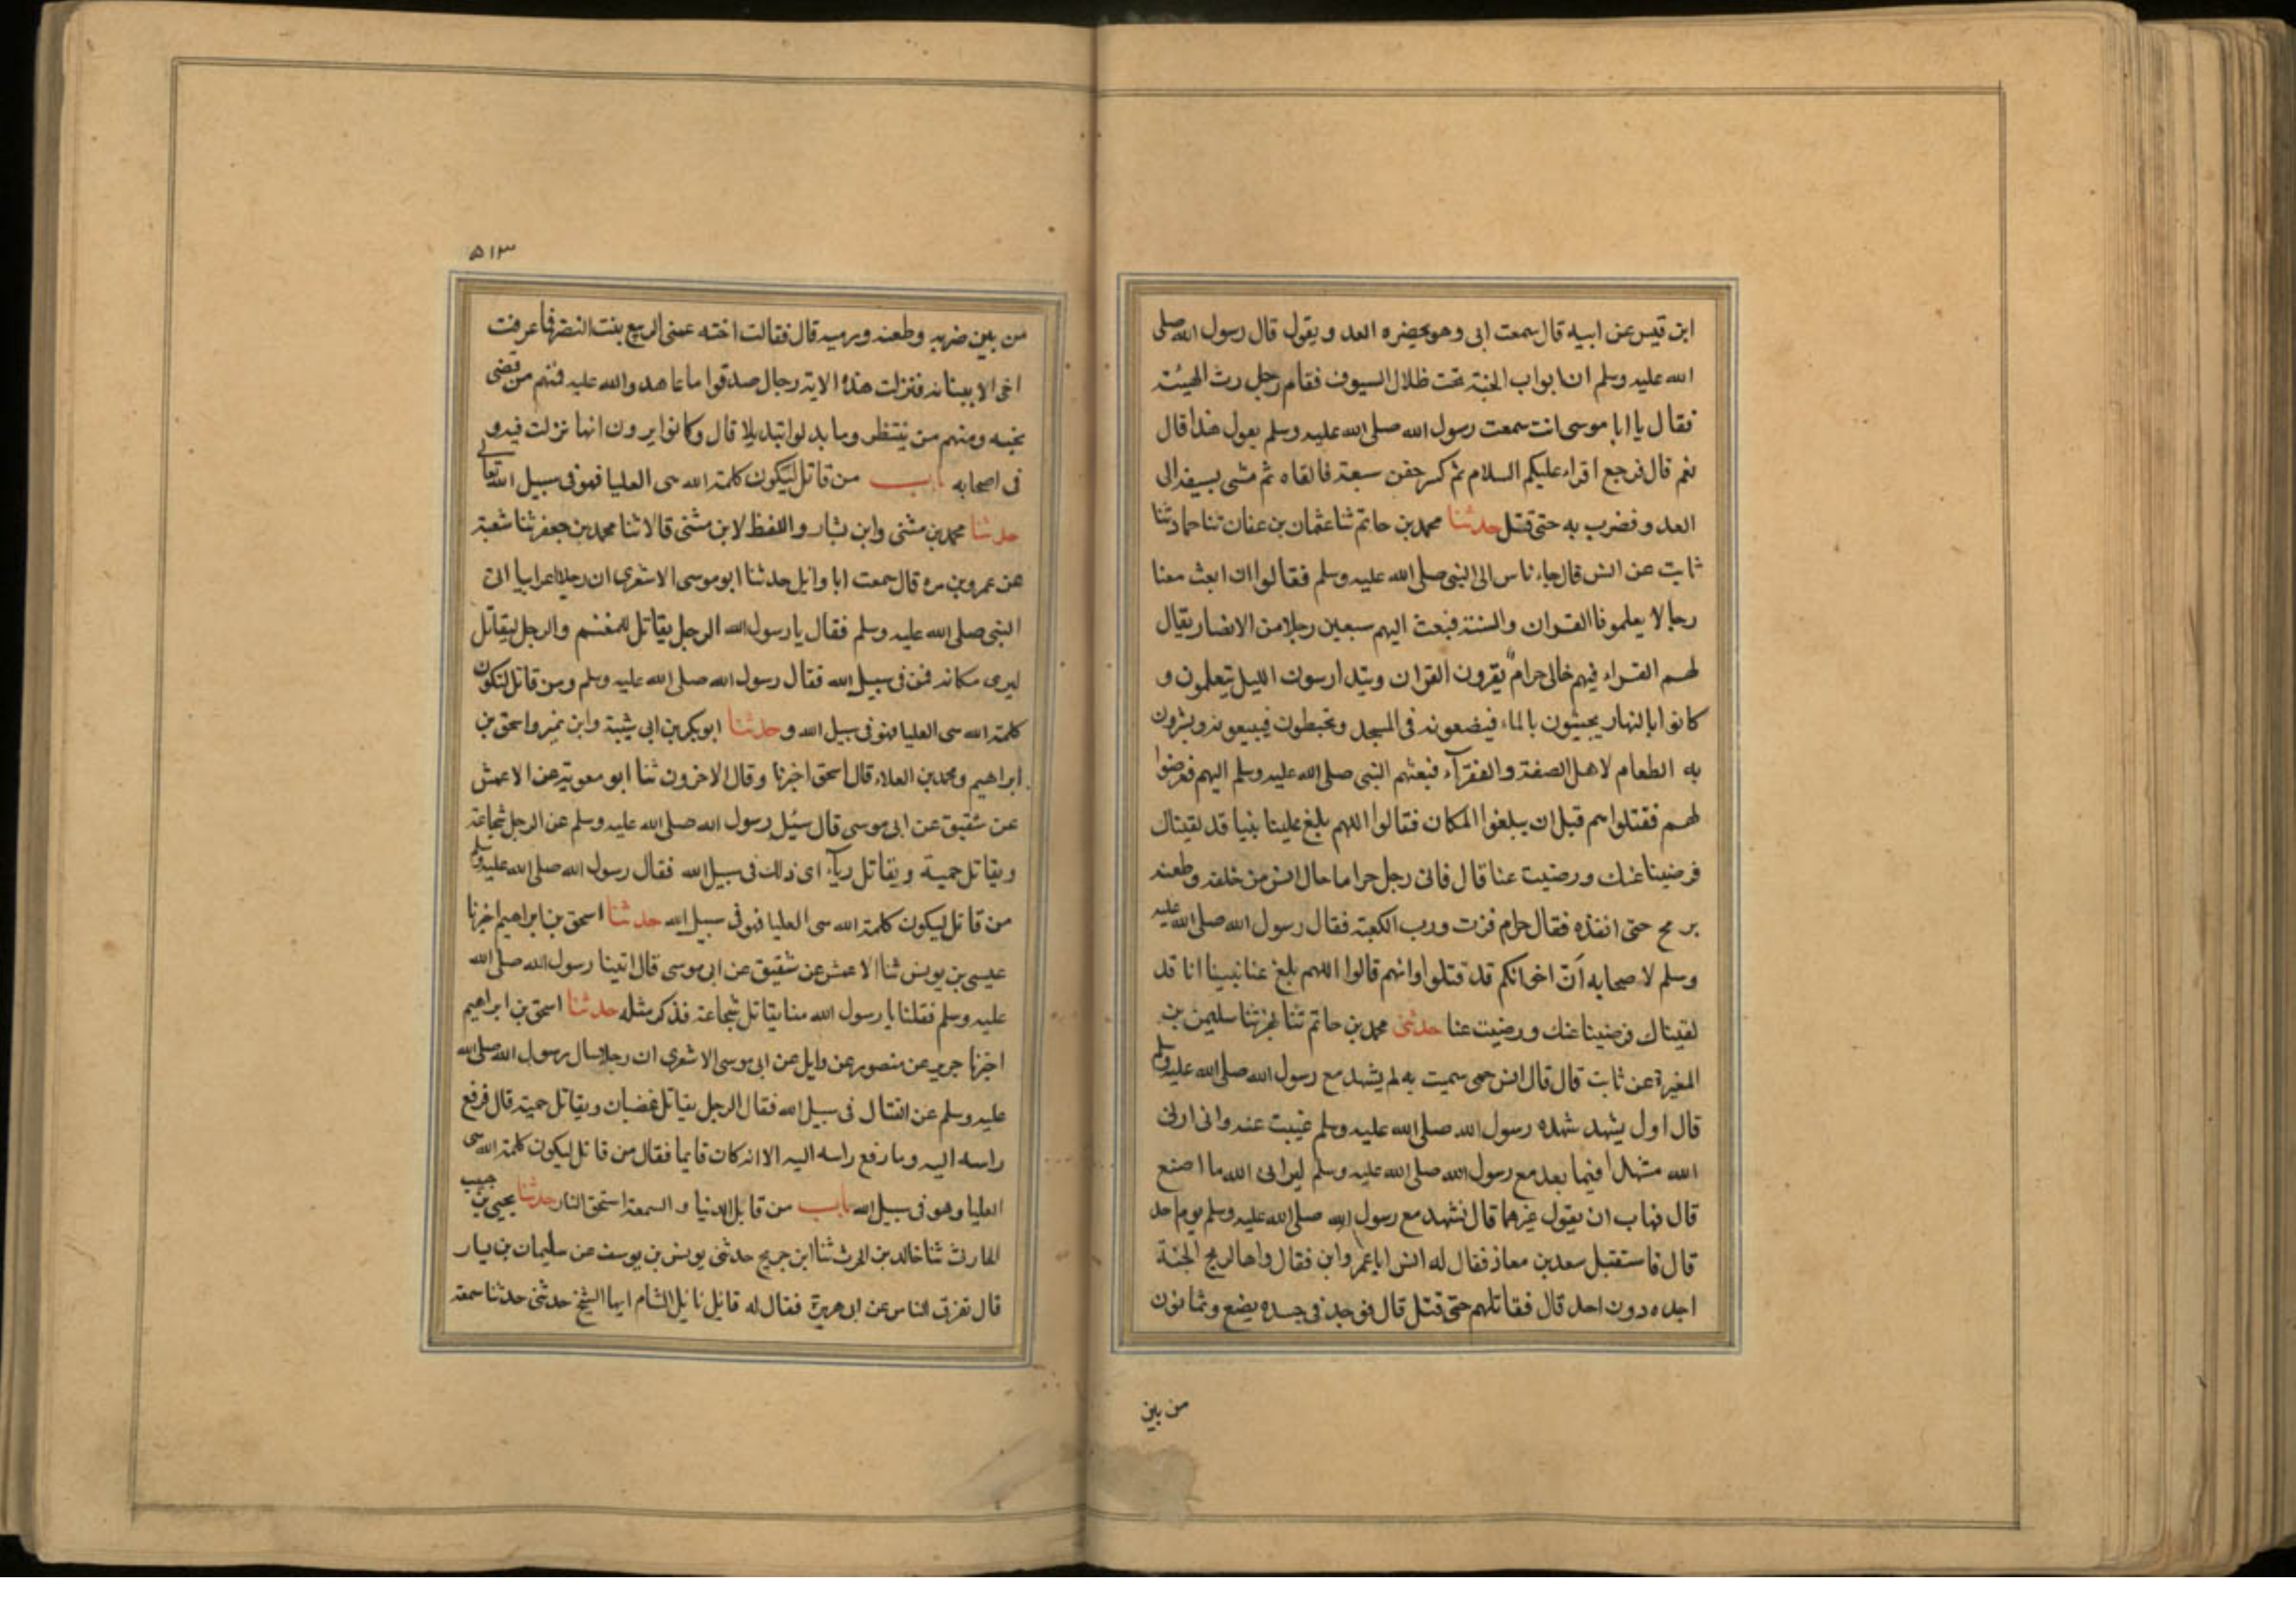 ابن قيس عن ابيه قال سمعت ابى وهو بحضره العدو يقول قال رسول الله صلى
الله عليه وسلم ان ابواب الجنة تحت ظلال السيوف فقام رجل رث الهيئة
فقال يا ابا موسى انت سمعت رسول الله صلى الله عليه وسلم يقول هذا قال
نعم قال فرجع اقراء عليكم السلام ثم كسر جفن سيفه فالقاه ثم مشى بسيفه الى
العدو فضرب به حتى قتل حدثنا محمد بن حاتم ثنا عثمان بن عفان ثنا حماد ثنا
ثابت عن انس قال جاء ناس الى النبى صلى الله عليه وسلم فقالوا ان ابعث معنا
رجالا يعلمونا القران والسنة فبعث اليهم سبعين رجلا من الانصار يقال
لهم القراء فيهم خالى حرام يقرون القران ويتدارسون الليل يتعلمون و
كانوا بالنهار يجيئون بالماء فيضعونه فى المسجد وتحبطون فيبيعونه ويشرون
به الطعام لاهل الصفة والفقرآء فبعثهم النبى صلى الله عليه وسلم اليهم فعرضوا
لهم فقتلوا هم قبل ان يبلغوا المكان فقالوا اللهم بلغ علينا نبيا قد لقيناك
فرضينا عنك ورضيت عنا قال فاتى رجل حراما خال انس من خلفه وطعنه
برمح حتى انفذه فقال حرام فزت ورب الكعبة فقال رسول الله صلى الله عليه
وسلم لاصحابه ان اخوانكم قد قتلوا وانهم قالوا اللهم بلغ عنا نبينا انا قد
لقيناك فرضينا عنك ورضيت عنا حدثنى محمد بن حاتم ثنا بهز ثنا سليمن بن
المغيرة عن ثابت قال قال انس عمى سميت به لم يشهد مع رسول الله صلى الله عليه وسلم
قال اول يشهد شهده رسول الله صلى الله عليه وسلم غيبت عنه وانى ارانى
الله مشهدا فيما بعد مع رسول الله صلى الله عليه وسلم ليرانى الله ما اصنع
قال فهاب ان يقول غيرها قال فشهد مع رسول الله صلى الله عليه وسلم يوم احد
قال فاستقبل سعد بن معاذ فقال له انس ابا عمر واين فقال واها لريح الجنة
اجده دون احد قال فقاتلهم حتى قتل قال فوجد فى جسده بضع وثمانون
من بين
٥١٣
من بين ضربه وطعنه ورميه قال فقالت اخته عمتى الربيع بنت النضر فما عرفت
اخى الا ببنانه فنزلت هذه الاية رجال صدقوا ما عاهدوا الله عليه فمنهم من قضى
نحبه ومنهم من ينتظر وما بدلوا تبديلا قال وكانوا يرون انها نزلت فيه و
فى اصحابه باب من قاتل ليكون كلمة الله هى العليا فهو فى سبيل الله تعالى
حدثنا محمد بن مثنى وابن بشار واللفظ لابن مثنى قالا ثنا محمد بن جعفر ثنا شعبة
عن عمرو بن مره قال سمعت ابا وايل حدثنا ابو موسى الاشعرى ان رجلا اعرابيا اتى
النبى صلى الله عليه وسلم فقال يا رسول الله الرجل يقاتل للمغنم والرجل ليقاتل
ليرى مكانه فمن فى سبيل الله فقال رسول الله صلى الله عليه وسلم ومن قاتل لتكون
كلمة الله هى العليا فهو فى سبيل الله وحدثنا ابو بكر بن ابى شيبة وابن نمير واسحق بن
ابراهيم ومحمد بن العلاء قال اسحق اخبرنا وقال الاخرون ثنا ابو معوية عن الاعمش
عن شقيق عن ابى موسى قال سئل رسول الله صلى الله عليه وسلم عن الرجل شجاعة
ويقاتل حمية ويقاتل رياء اى ذلك فى سبيل الله فقال رسول الله صلى الله عليه وسلم
من قاتل ليكون كلمة الله هى العليا فهو فى سبيل الله حدثنا اسحق بن ابراهيم اخبرنا
عيسى بن يونس ثنا الاعمش عن شقيق عن ابى موسى قال اتينا رسول الله صلى الله
عليه وسلم فقلنا يا رسول الله منا يقاتل شجاعة فذكر مثله حدثنا اسحق بن ابراهيم
اخبرنا جرير عن منصور عن وايل عن ابى موسى الاشعرى ان رجلا سال رسول الله صلى الله
عليه وسلم عن القتال فى سبيل الله فقال الرجل يقاتل غضبان ويقاتل حمية قال فرفع
راسه اليه وما رفع راسه اليه الا انه كان قايما فقال من قاتل ليكون كلمة الله هى
العليا وهو فى سبيل الله باب من قاتل للدنيا والسمعة استحق النار حدثنا يحيى بن حبيب
الحارث ثنا خالد بن الحرث ثنا ابن جريج حدثنى يونس بن يوسف عن سليمان بن يسار
قال تفرق الناس عن ابى هريرة فقال له قايل ناتل الشام ايها الشيخ حدثنى حدثنا سمعته